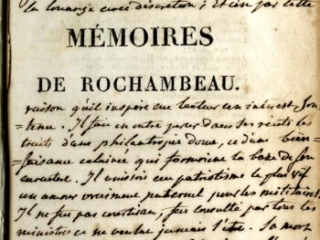 la louange avec discretion; et c'en par cette
MÉMOIRES
DE ROCHAMBEAU.
raison qu'il inspire au lecteur un interest sou
tenu. Il fait en outre passer dans ses récits les
traits d'une philantropie douce, et d'une bien
faisance eclairée qui formoient la base de son
caractere. Il unissoit au patriotisme le plus vif
un amour vraiment paternel pour les militaires.
Il ne fut pas courtisan, fut consulté par tous les
ministres et ne voulut jamais l'être. Sa mort